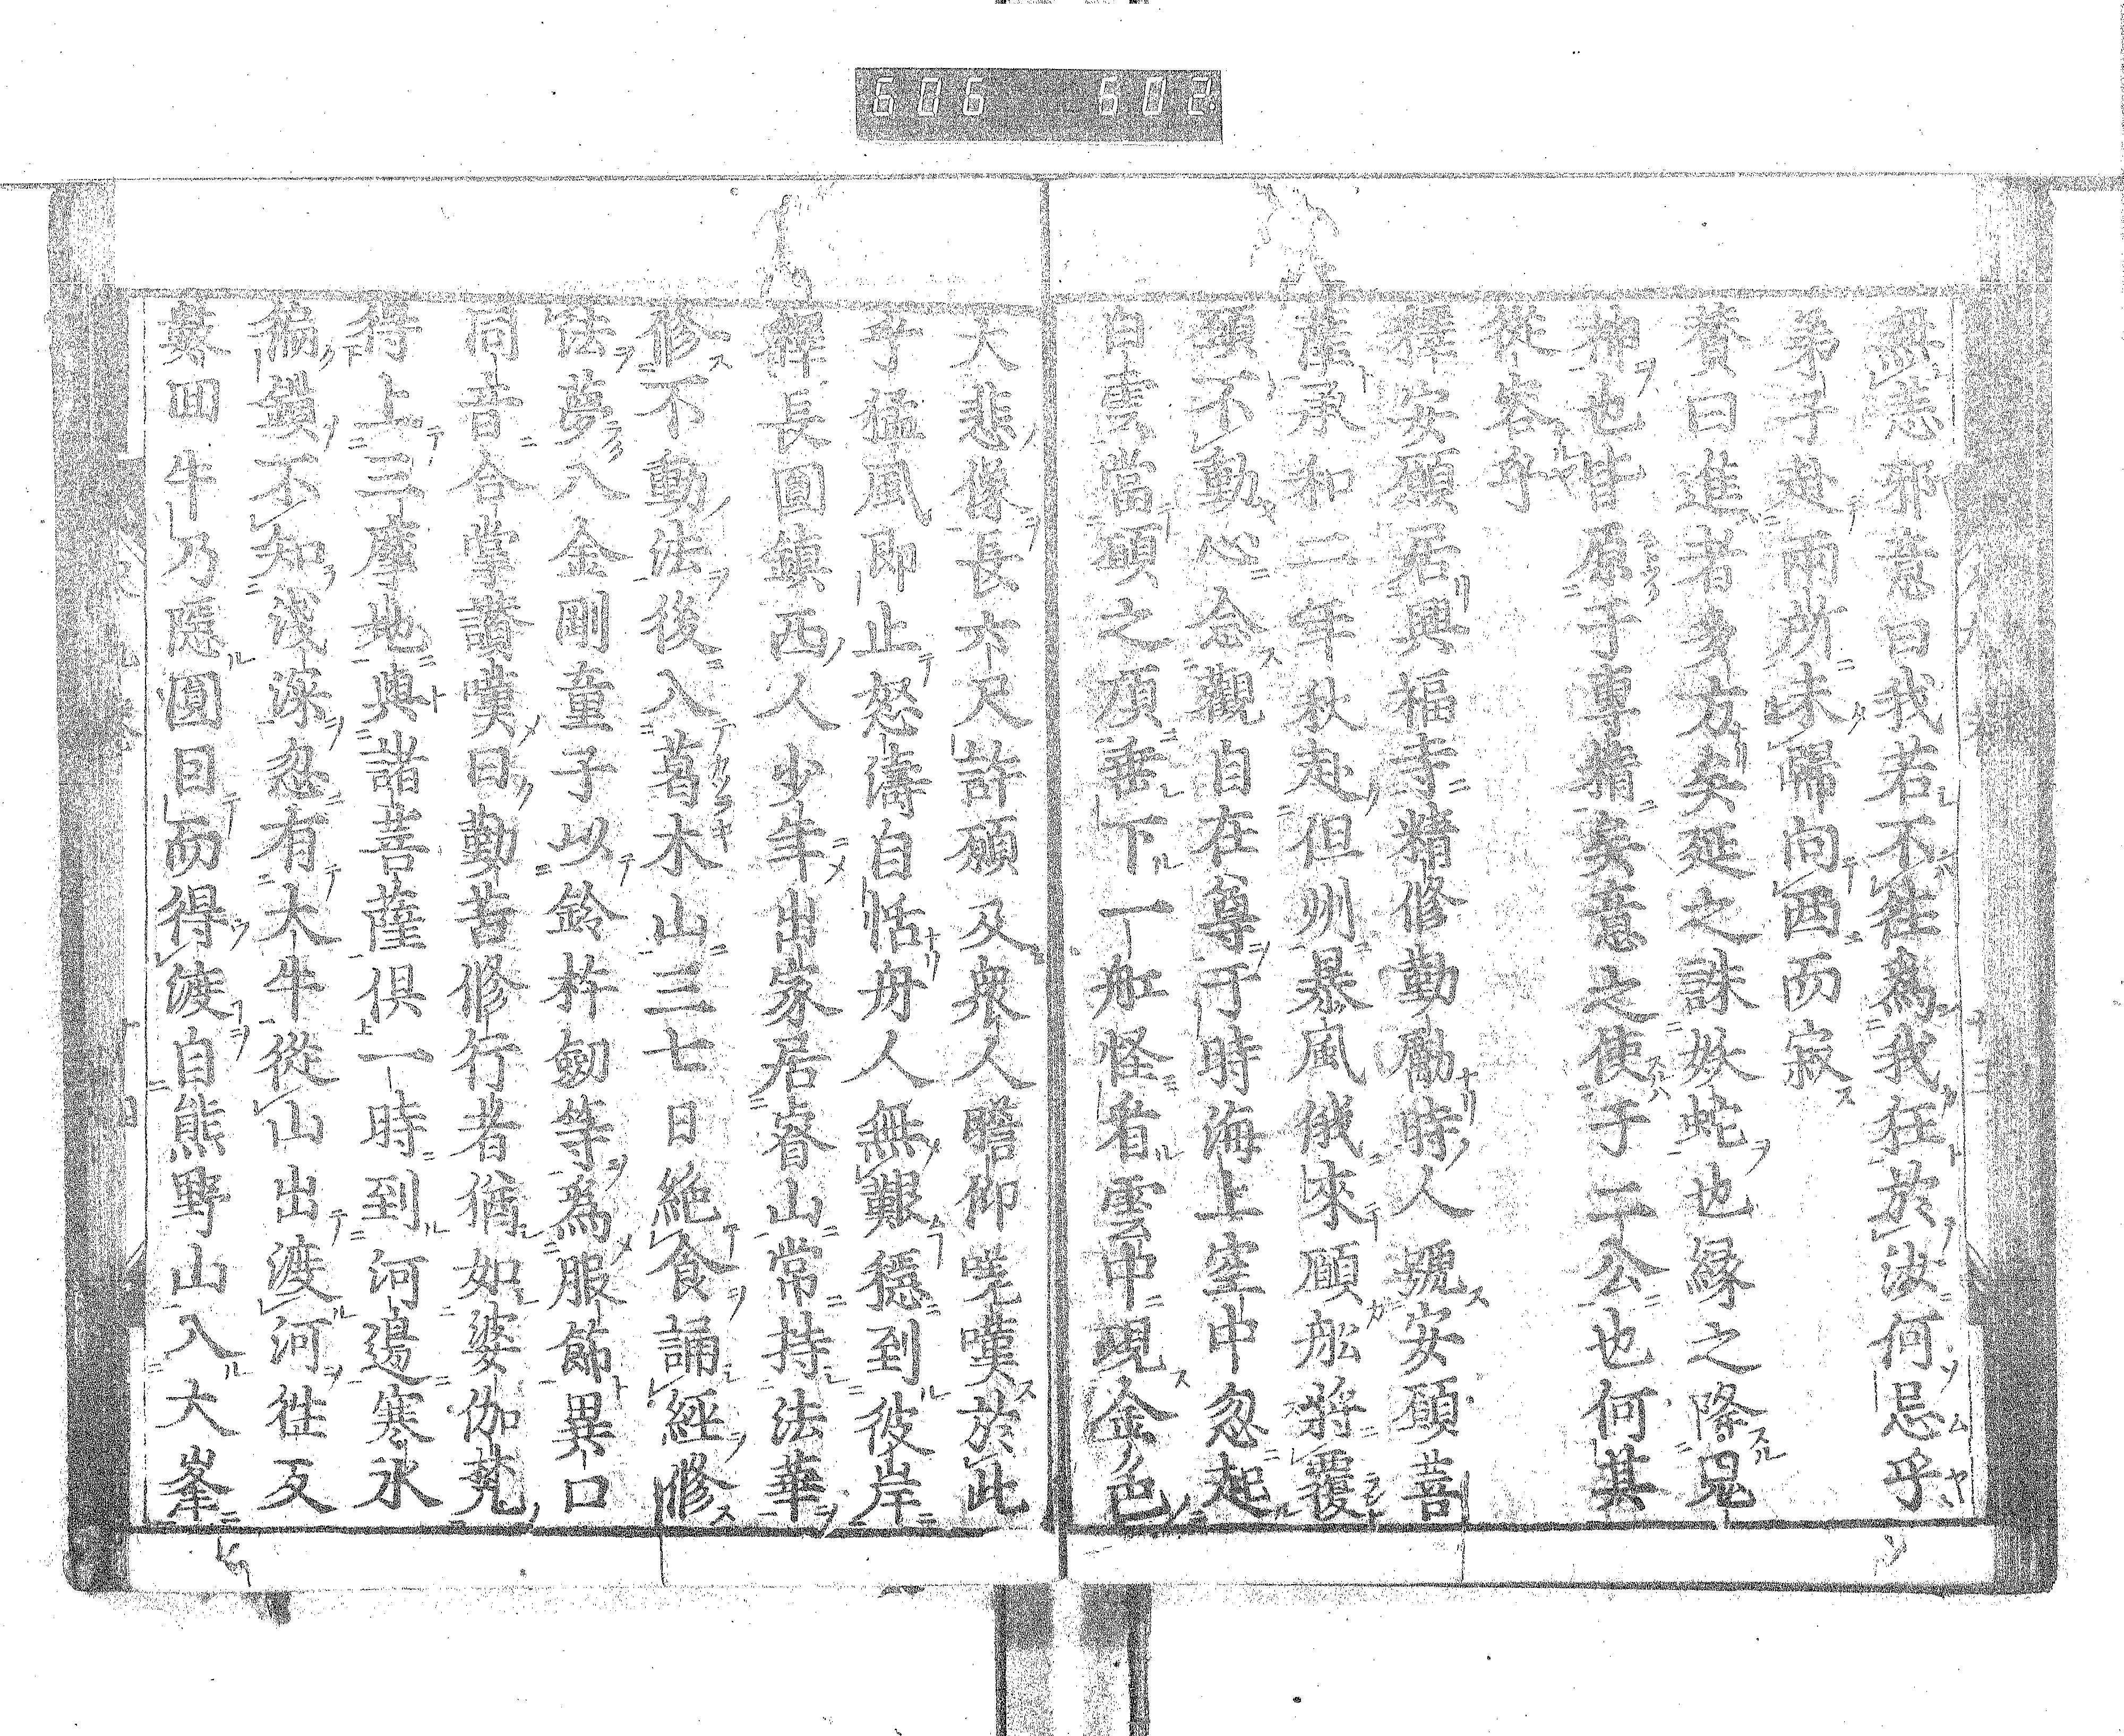 606 602
無恚邪意曰我若不往爲我狂於汝何忌乎
弟子赴雨所未歸向西而寂
贊曰進者多方矣延之誅妖蛇也緣之降鬼
神也皆原于專精矣意之使于二公也何其
從容乎
釋安願居興福寺精修勤勵時人號安願菩
薩承和二年秋赴但州暴風俄來願舩將覆
願不動心念觀自在尊于時海上空中忽起
白雲當願之頂垂下一舡怪看雲中現金色
大悲像長六尺許願及衆人瞻仰嘆嘆於此
乎猛風即止怒濤自恬舟人無艱穩到彼岸
釋長圓鎮西人少年出家居睿山常持法華
修不動法後入葛木山三七日絶食誦經修
法夢八金剛童子以鈴杵劒等爲服飾異口
同音合掌讚嘆曰勤苦修行者猶如婆伽梵
得上三摩地與諸菩薩俱一時到河邊寒氷
徧鎖不知淺深忽有大牛從山出渡河往反
數回牛乃隱圓目而得渡自熊野山入大峯